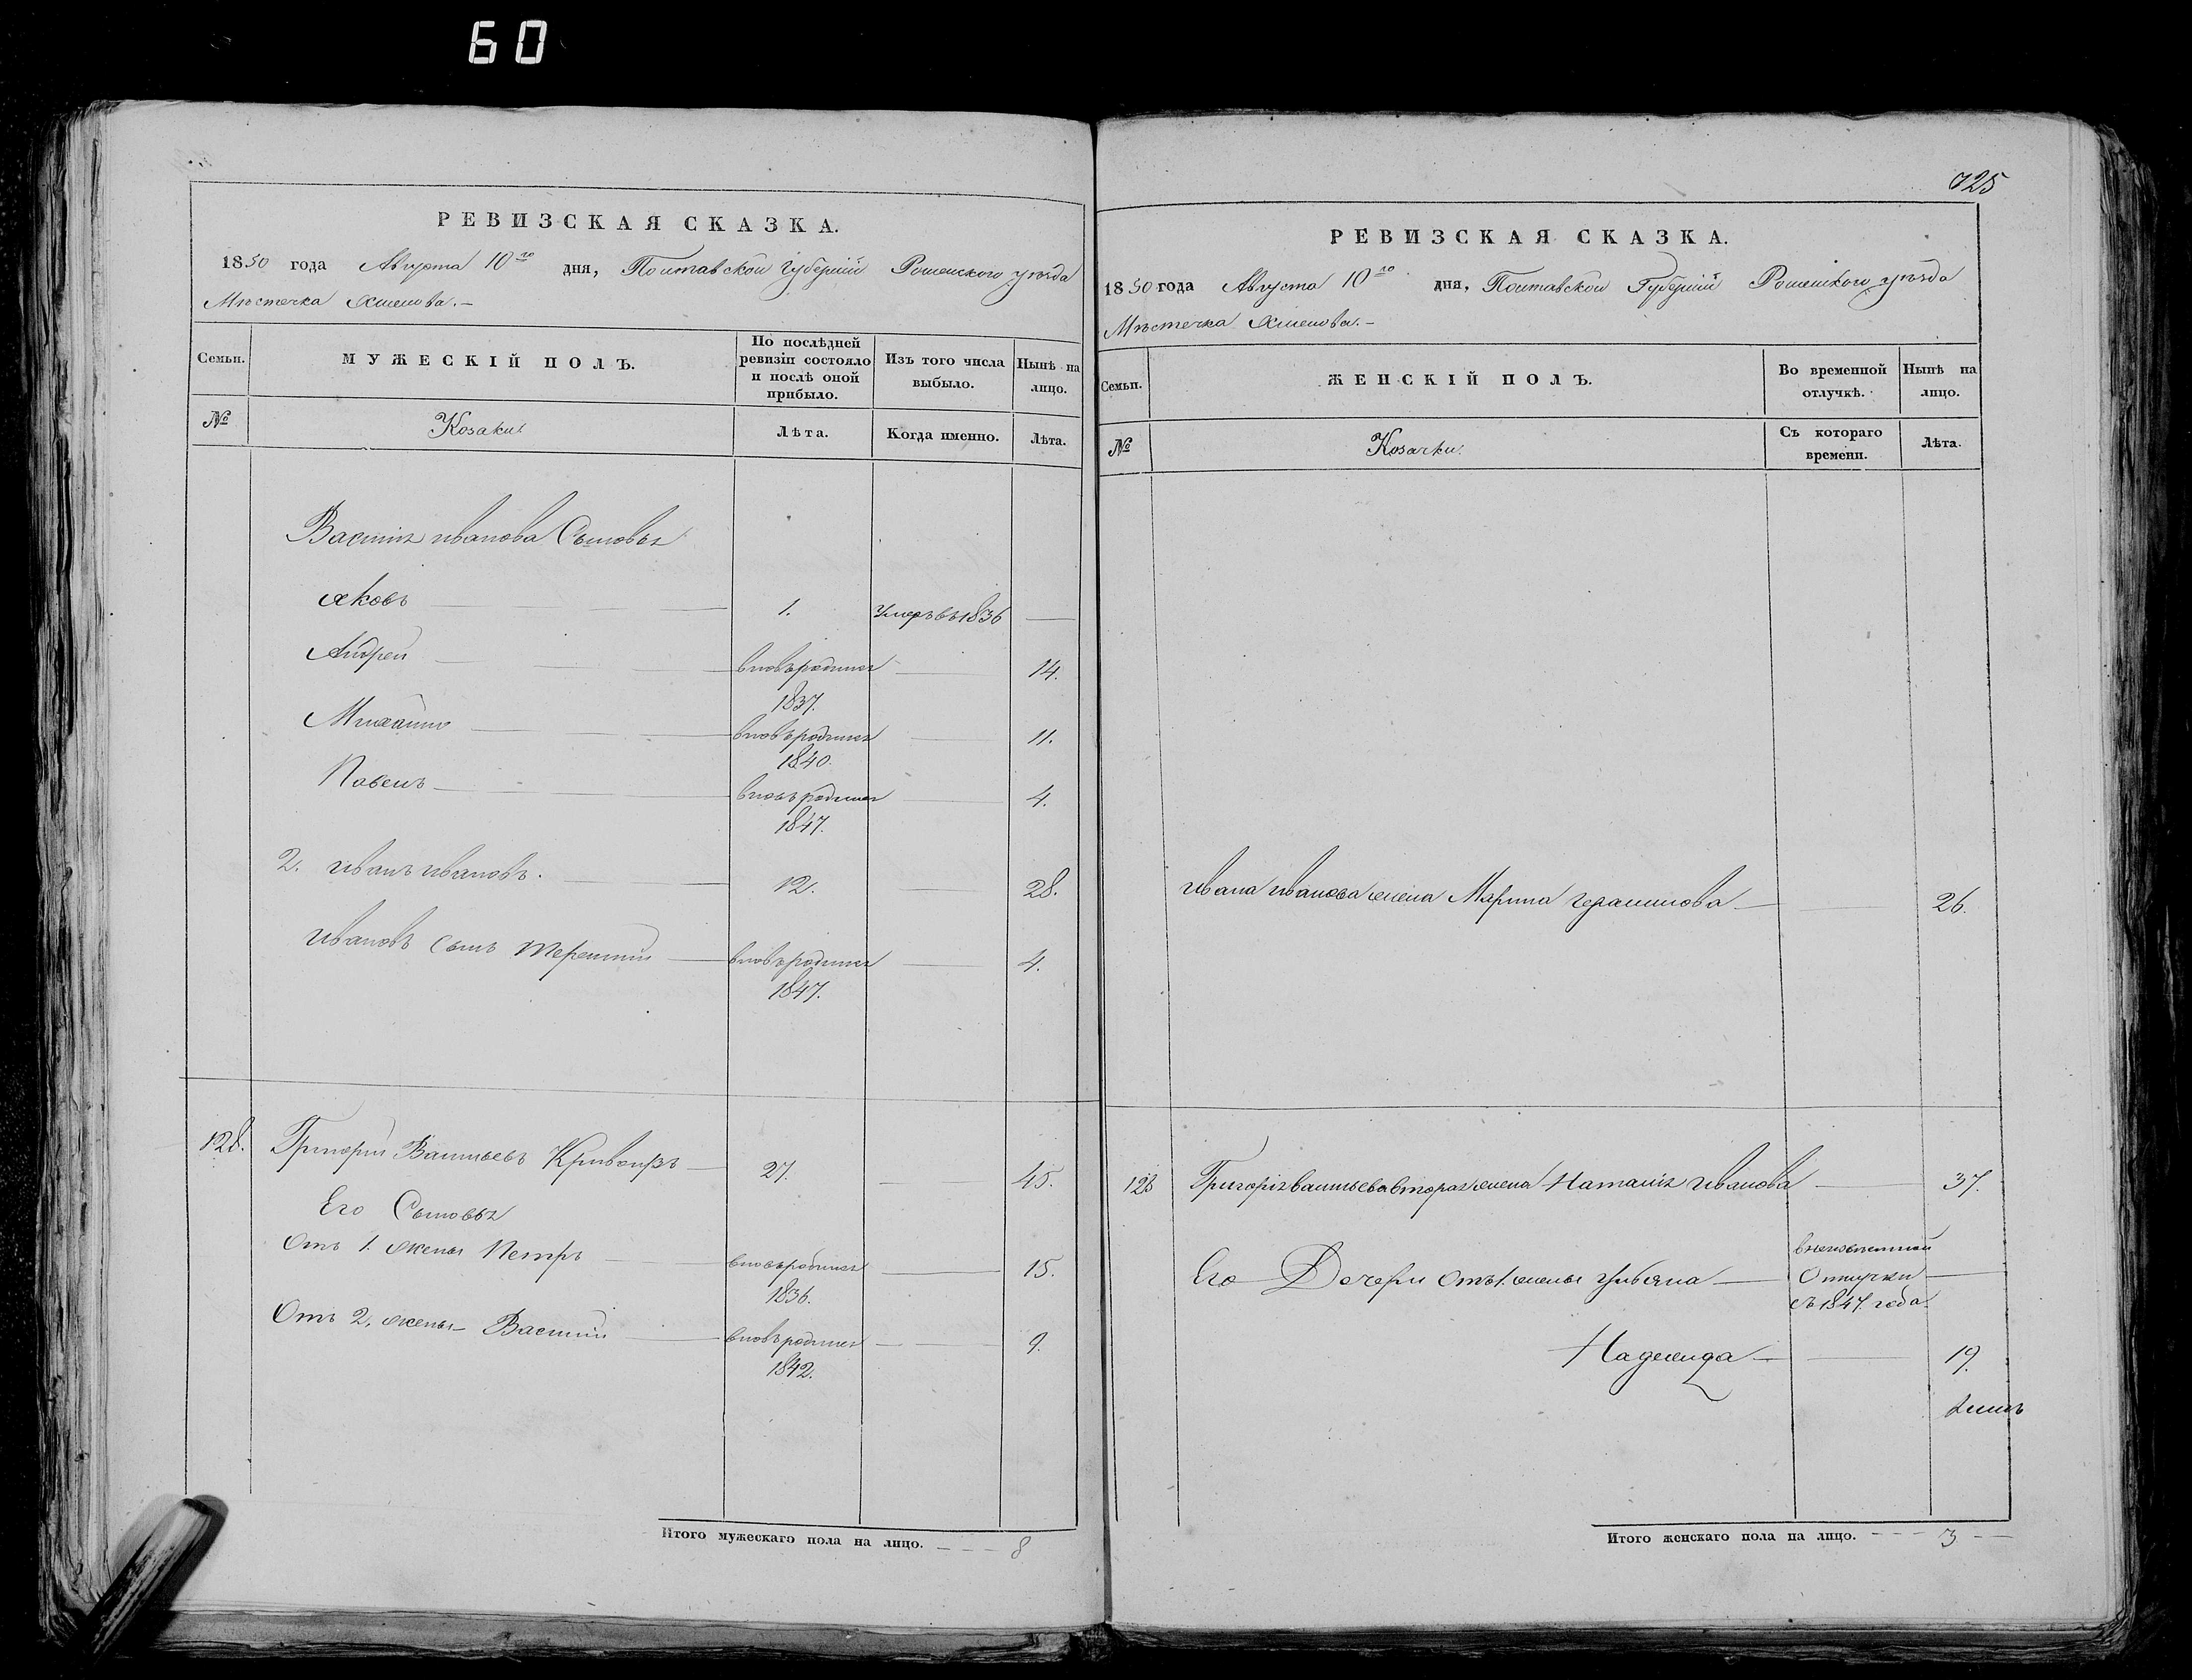 60
РЕВИЗСКАЯ СКАЗКА.
1850 года Августа 10го дня, Полтавской Губернии Роменского уѣзда
Мѣстечка Хмелова.-
Семьи.
МУЖЕСКІЙ ПОЛЪ.
По послѣдней
ревизіи состояло
и послѣ оной
прибыло.
Изъ того числа
выбыло.
Нынѣ на
лицо.
№
Козаки.
Лѣта.
Когда именно.
Лѣта.
Василія иванова Сыновья
Яковъ 1. Умеръ въ 1836
Андрей вновьродился 14.
1837.
Михайло вновьродился 11.
1840.
Павелъ вновьродился 4.
1847.
2. иванъ ивановъ. 12. 28.
ивановъ сынъ терентій вновьродился 4.
1847.
128. Григорій Васильевъ Кривоузъ 27. 45.
Его Сыновья
Отъ 1. жены Петръ вновьродился 15.
1836.
Отъ 2. жены Василій вновьродился 9.
1842.
Итого мужескаго пола на лицо. 8
725
РЕВИЗСКАЯ СКАЗКА.
1850 года Августа 10го дня, Полтавской Губернии Роменского уѣзда
Мѣстечка Хмелова.-
Семьи.
ЖЕНСКІЙ ПОЛЪ.
Во временной
отлучкѣ.
Нынѣ на
лицо.
№
Козачки.
Съ котораго
времени.
Лѣта.
ивана иванова жена Марина герасимова 26.
128 Григорія васильева вторая жена Наталія иванова 37.
Его Дочери отъ 1. жены ульяна
Отлучки
съ 1847 года.
Надежда 19.
Итого женскаго пола на лицо. 3